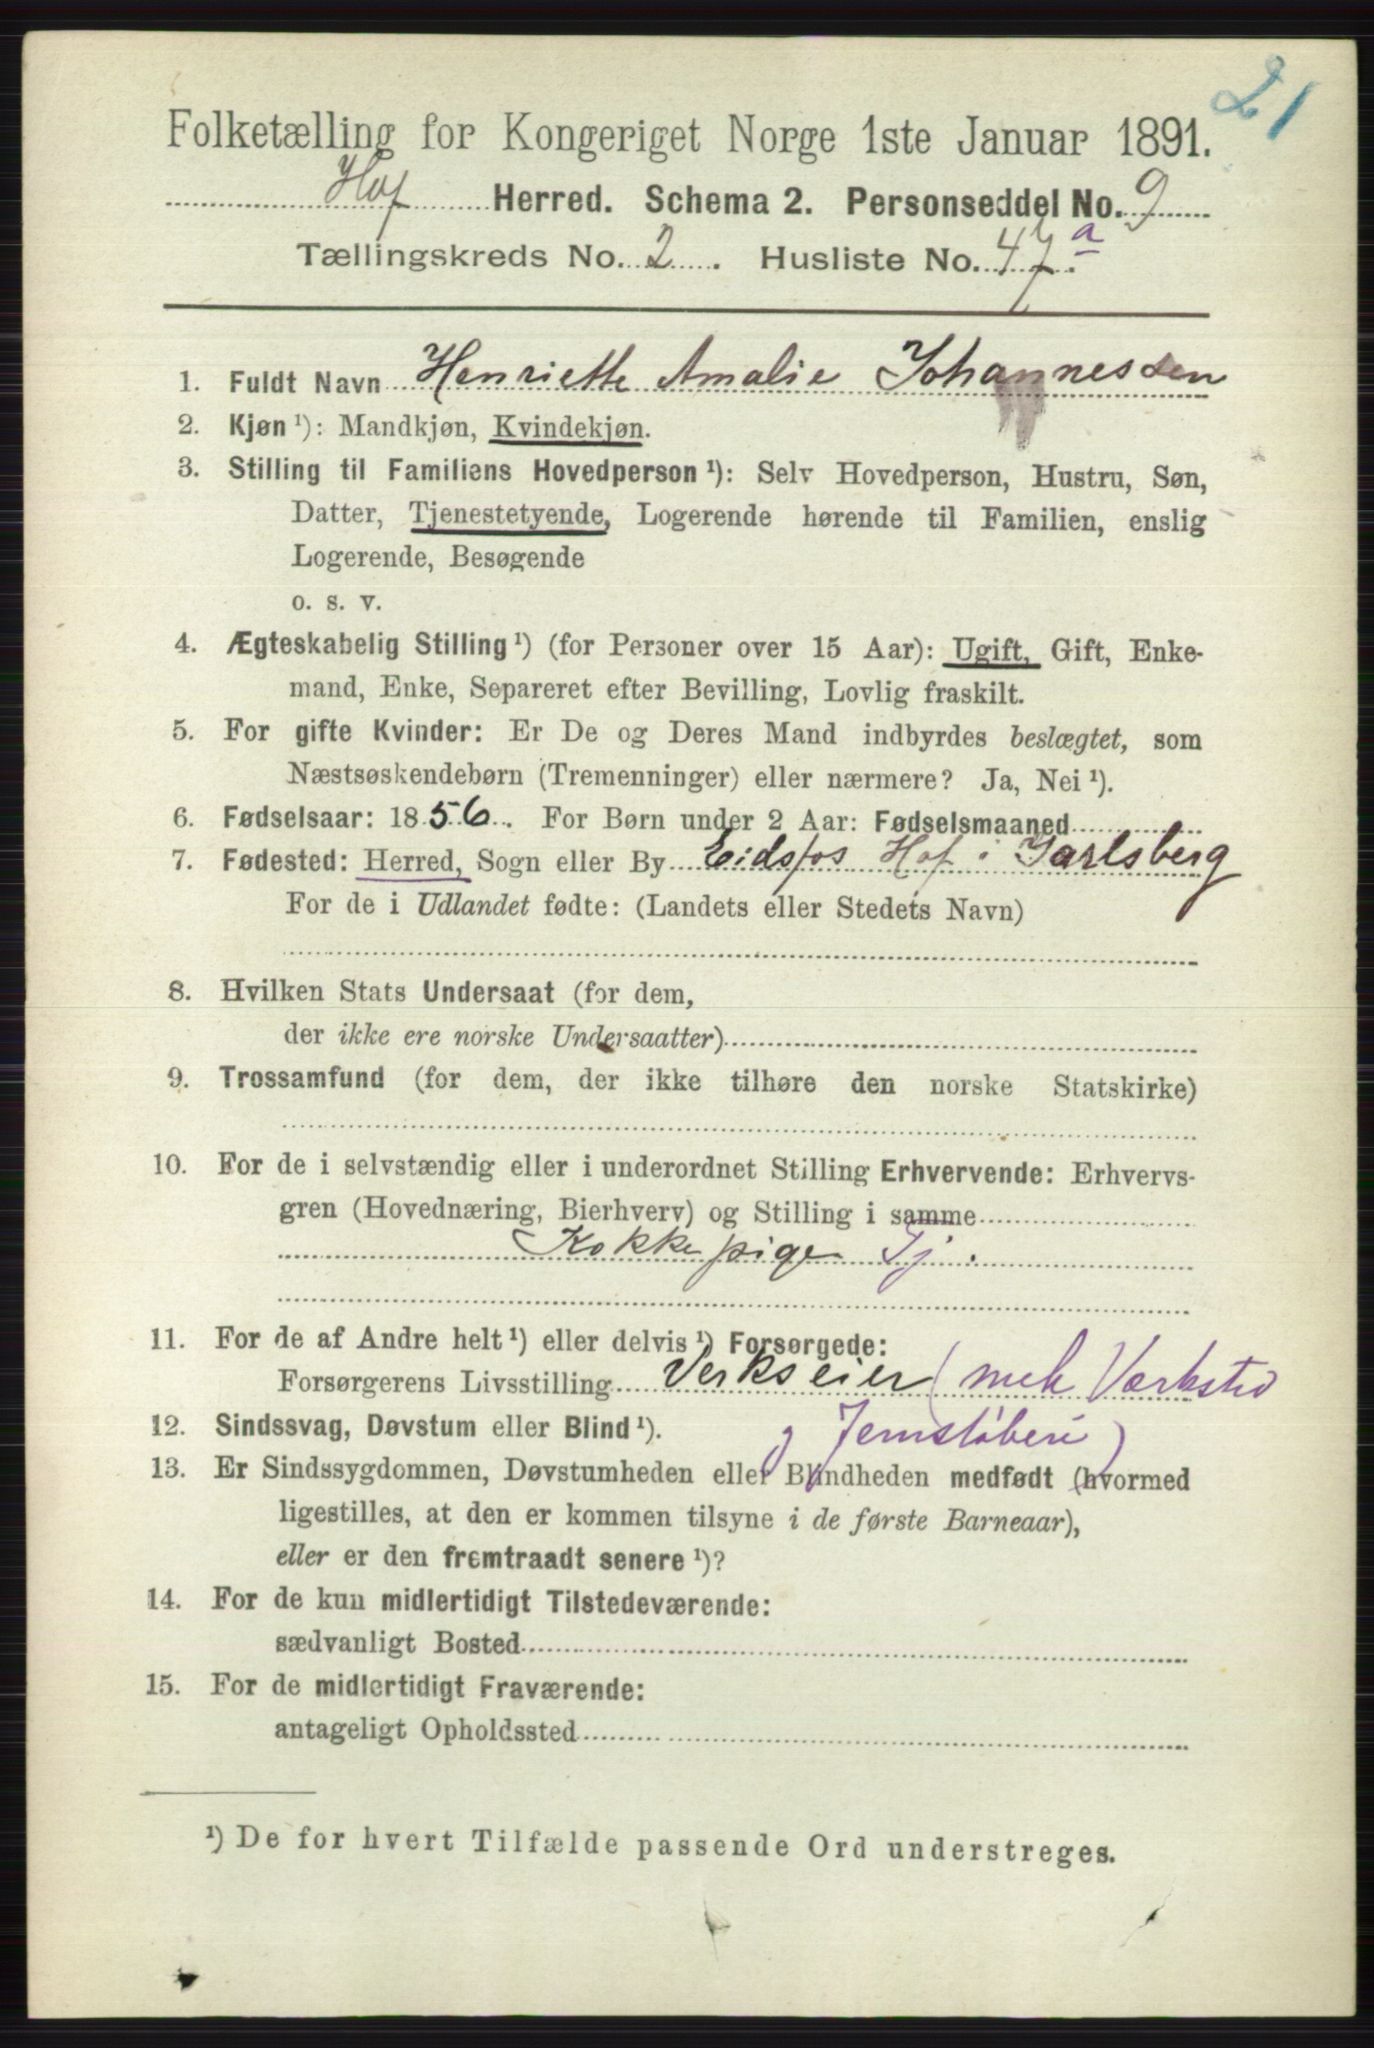 21
Folketælling for Kongeriget Norge 1ste Januar 1891.
Hof Herred. Schema 2. Personseddel No. 9
Tællingskreds No. 2. Husliste No. 47.a
1. Fuldt Navn Henriette Amalie Johannessen
2. Kjøn ¹): Mandkjøn, Kvindekjøn.
3. Stilling til Familiens Hovedperson ¹): Selv Hovedperson, Hustru, Søn,
Datter, Tjenestetyende, Logerende hørende til Familien, enslig
Logerende, Besøgende
o. s. v.
4. Ægteskabelig Stilling ¹) (for Personer over 15 Aar): Ugift, Gift, Enke-
mand, Enke, Separeret efter Bevilling, Lovlig fraskilt.
5. For gifte Kvinder: Er De og Deres Mand indbyrdes beslægtet, som
Næstsøskendebørn (Tremenninger) eller nærmere? Ja, Nei ¹).
6. Fødselsaar: 1856. For Børn under 2 Aar: Fødselsmaaned
7. Fødested: Herred, Sogn eller By Eidsfos Hof i Jarlsberg
For de i Udlandet fødte: (Landets eller Stedets Navn)
8. Hvilken Stats Undersaat (for dem,
der ikke ere norske Undersaatter)
9. Trossamfund (for dem, der ikke tilhøre den norske Statskirke)
10. For de i selvstændig eller i underordnet Stilling Erhvervende: Erhvervs-
gren (Hovednæring, Bierhverv) og Stilling i samme
Kokkepige Tj.
11. For de af Andre helt ¹) eller delvis ¹) Forsørgede:
Forsørgerens Livsstilling Verkseier (mek Værksted
12. Sindssvag, Døvstum eller Blind ¹). g Jernstøberi)
13. Er Sindssygdommen, Døvstumheden eller Blindheden medfødt (hvormed
ligestilles, at den er kommen tilsyne i de første Barneaar),
eller er den fremtraadt senere ¹)?
14. For de kun midlertidigt Tilstedeværende:
sædvanligt Bosted
15. For de midlertidigt Fraværende:
antageligt Opholdssted
¹) De for hvert Tilfælde passende Ord understreges.